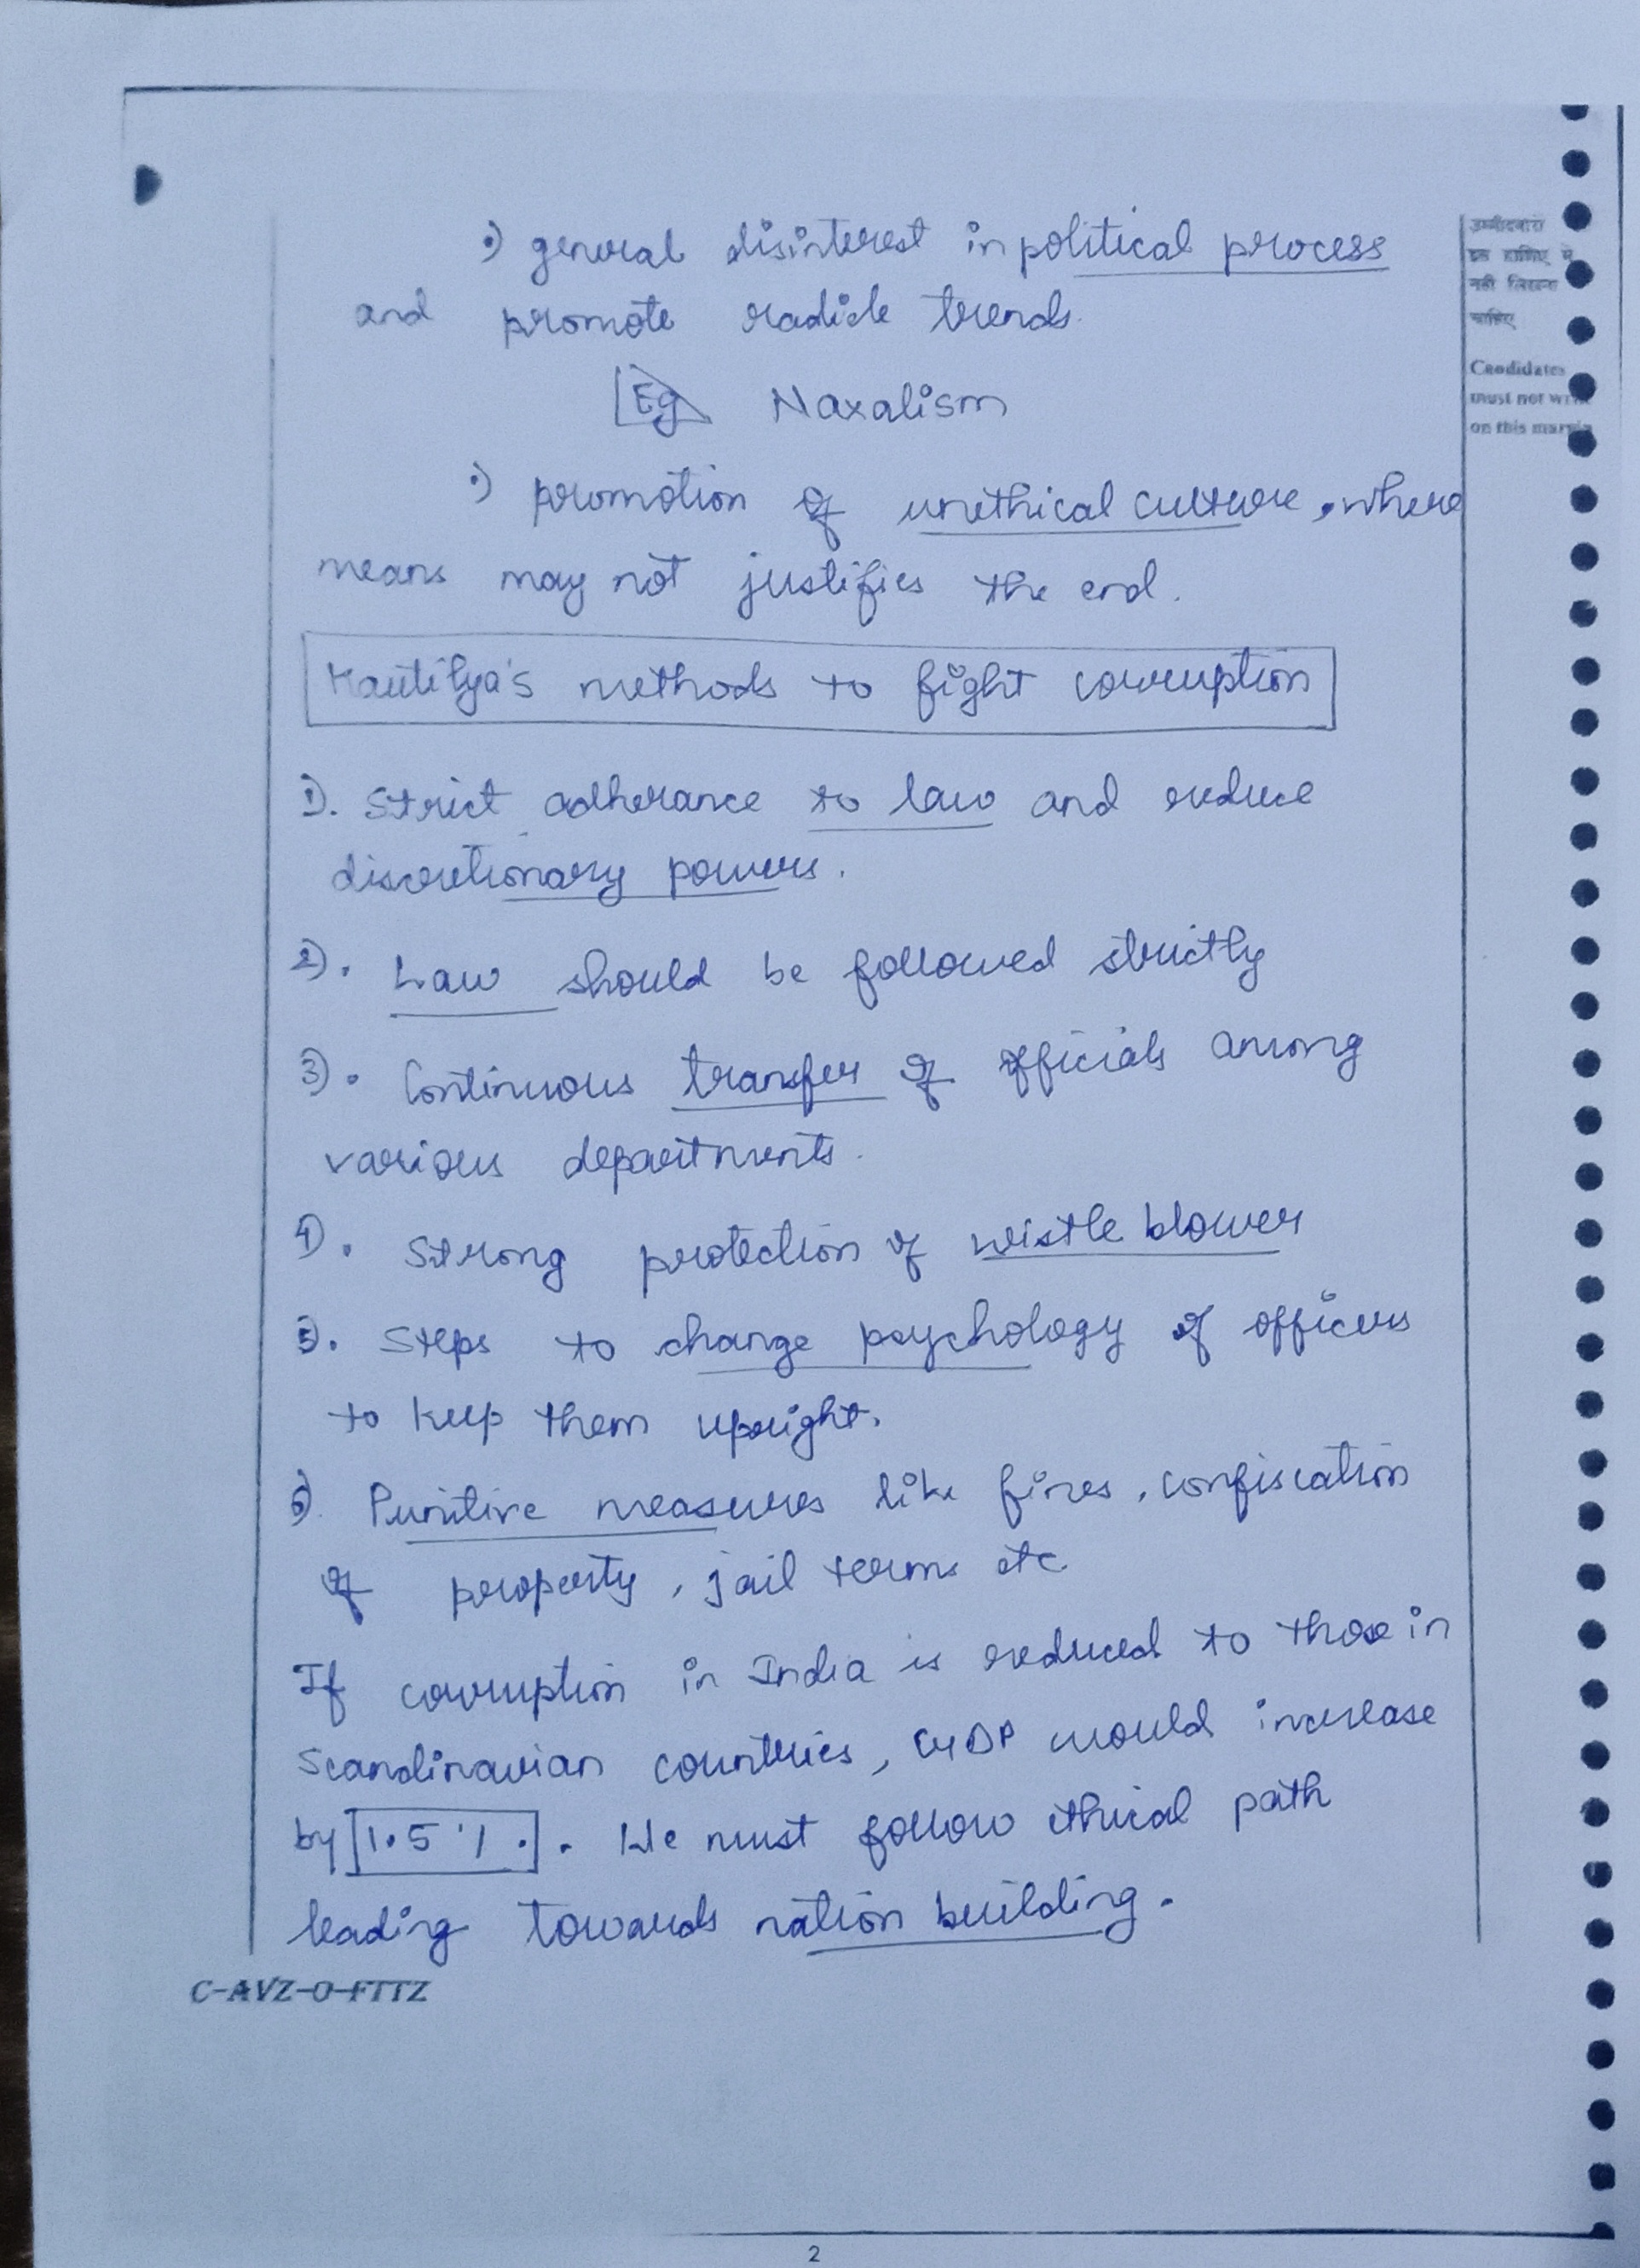 •) general disinterest in political process
and promote radicle trends.
Eg Naxalism
•) promotion of unethical culture, where
means may not justifies the end.
Kautilya's methods to fight corruption
1). Strict adherance to law and reduce
discretionary powers.
2). Law should be followed strictly
3). Continuous transfer of officials among
various departments.
4). Strong protection of wistle blower
5). Steps to change psychology of officers
to keep them upright.
6). Punitive measures like fines, confiscation
of property, jail terms etc
If corruption in India is reduced to those in
Scandinavian countries, GDP would increase
by 1.5%. We must follow ethical path
leading towards nation building.
उम्मीदवारों
इस हाशिए में
नहीं लिखना
चाहिए
Candidates
must not write
on this margin
C-AVZ-O-FTTZ
2